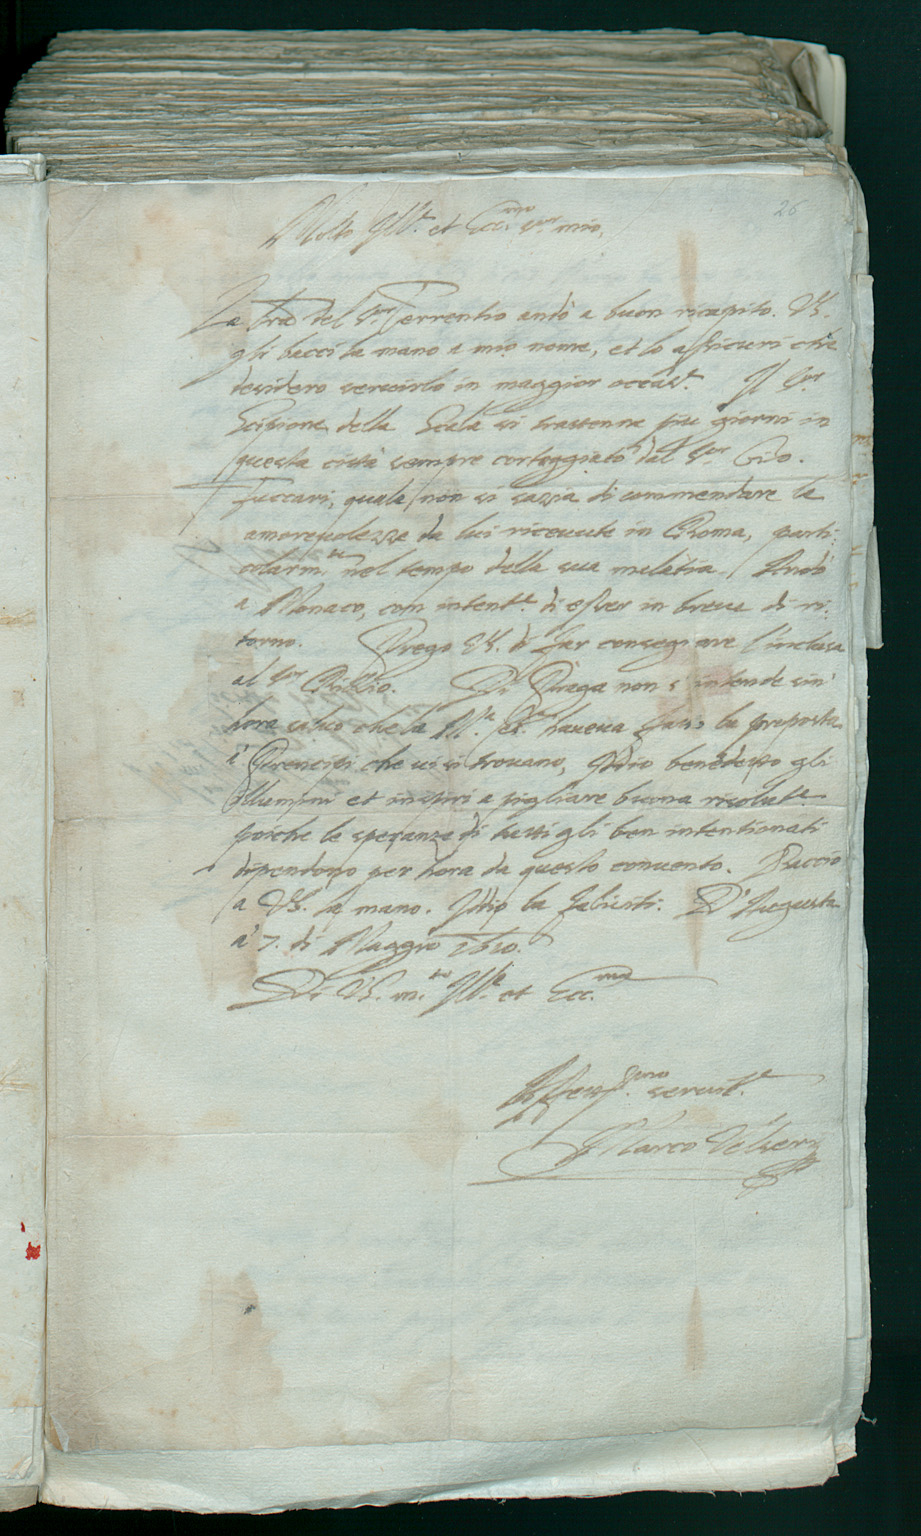 26
Molto Ill.e et Ecc.mo S.r mio,
La lr̃a del S.r Terrentio andò a buon ricapito. VS.
gli bacci la mano a mio nome, et lo assicuri che
desidero servirlo in maggior occas.e Il S.or
Scipione della Scala si trattenne più giorni in
questa città sempre corteggiato dal S.or Gio.
Fuccari, quale non si sazia di commendare le
amorevolezze da lui ricevute in Roma, parti
colarm.te nel tempo della sua malatia. Andò
a Monaco, con intent.e di esser in breve di ri:
torno. Prego VS. di far consegnare l'inclusa
al S.or Richio. Di Praga non s'intende sin'
hora salvo che la M.tà haveva fatto la proposta
a' Prencipi che vi si trovano, Iddio benedetto gli
illumini et inspiri a pigliare buona resolut.e
poiche le speranze di tutti gli ben intentionati
dipendono per hora da questo convento. Baccio
a VS. la mano. Iddio la feliciti. D'Augusta
a' 7. di Maggio 1610.
Di VS. m.to Ill.e et Ecc.ma
Affett.mo servit.e
Marco Velseri